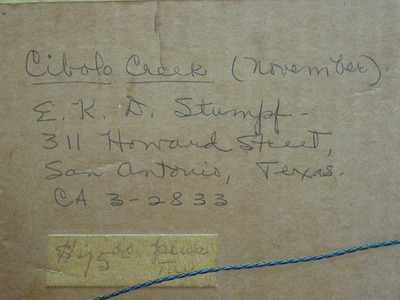 Cibolo Creek (November)
E. K. D. Stumpf-
311 Howard Street,
San Antonio, Texas.
CA 3-2833
plus
Tax